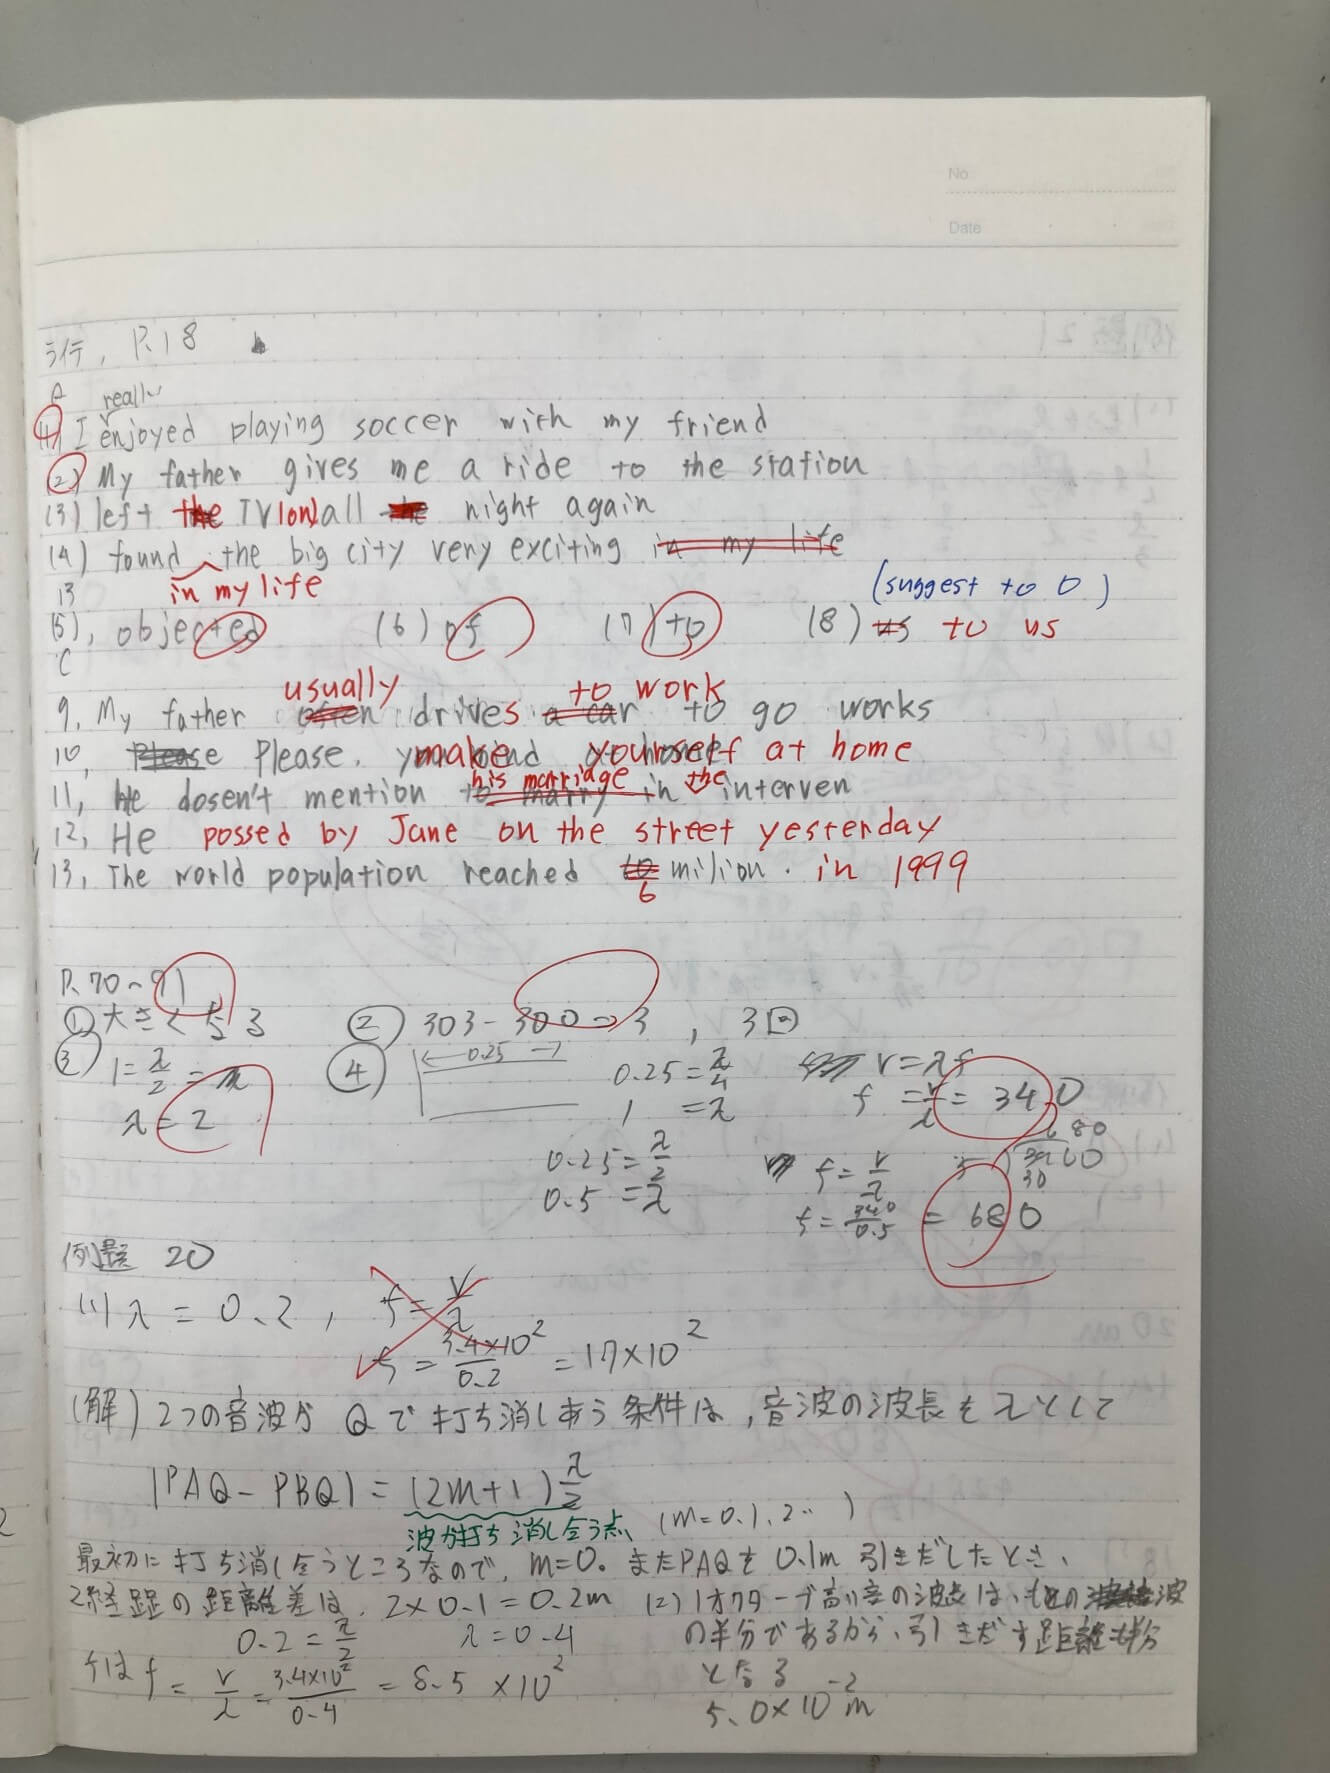 No.
Date
ライテ, P.18
A really
(1) I enjoyed playing soccer with my friend
(2) My father gives me a ride to the station
(3) left the TV (on) all the night again
(4) found the big city very exciting in my life
in my life
B
(suggest to O)
(5), objected (6) of (7) to (8) us to us
C
usually to work
9, My father often drives a car to go works
10, Please Please. make yourself at home
his marriage the
11, He dosen't mention to marry in interven
12, He possed by Jane on the street yesterday
13, The world population reached to milion. in 1999
6
P.70~71
①大きくなる ② 303-300=3, 3回
③ 1=λ/2=m ④ 0.25
λ=2
0.25=λ/4 v=λf
1=λ f=v/λ=340
0.25=λ/2 f=v/λ
0.5=λ f=340/0.5=680
680
30
例題 20
(1) λ=0.2, f=v/λ
f=3.4×10²/0.2=17×10²
(解) 2つの音波が Qで打ち消しあう条件は,音波の波長をλとして
|PAQ-PBQ|=(2m+1)λ/2
波が打ち消し合う点 (m=0.1.2..)
最初に打ち消し合うところなので, m=0. またPAQを0.1m引きだしたとき、
2経路の距離差は, 2×0.1=0.2m (2) 1オクターブ高い音の波長は、もとの音波
0.2=λ/2 λ=0.4 の半分であるから、引きだす距離も半分
チはf=v/λ=3.4×10²/0.4=8.5×10² となる
5.0×10⁻²m